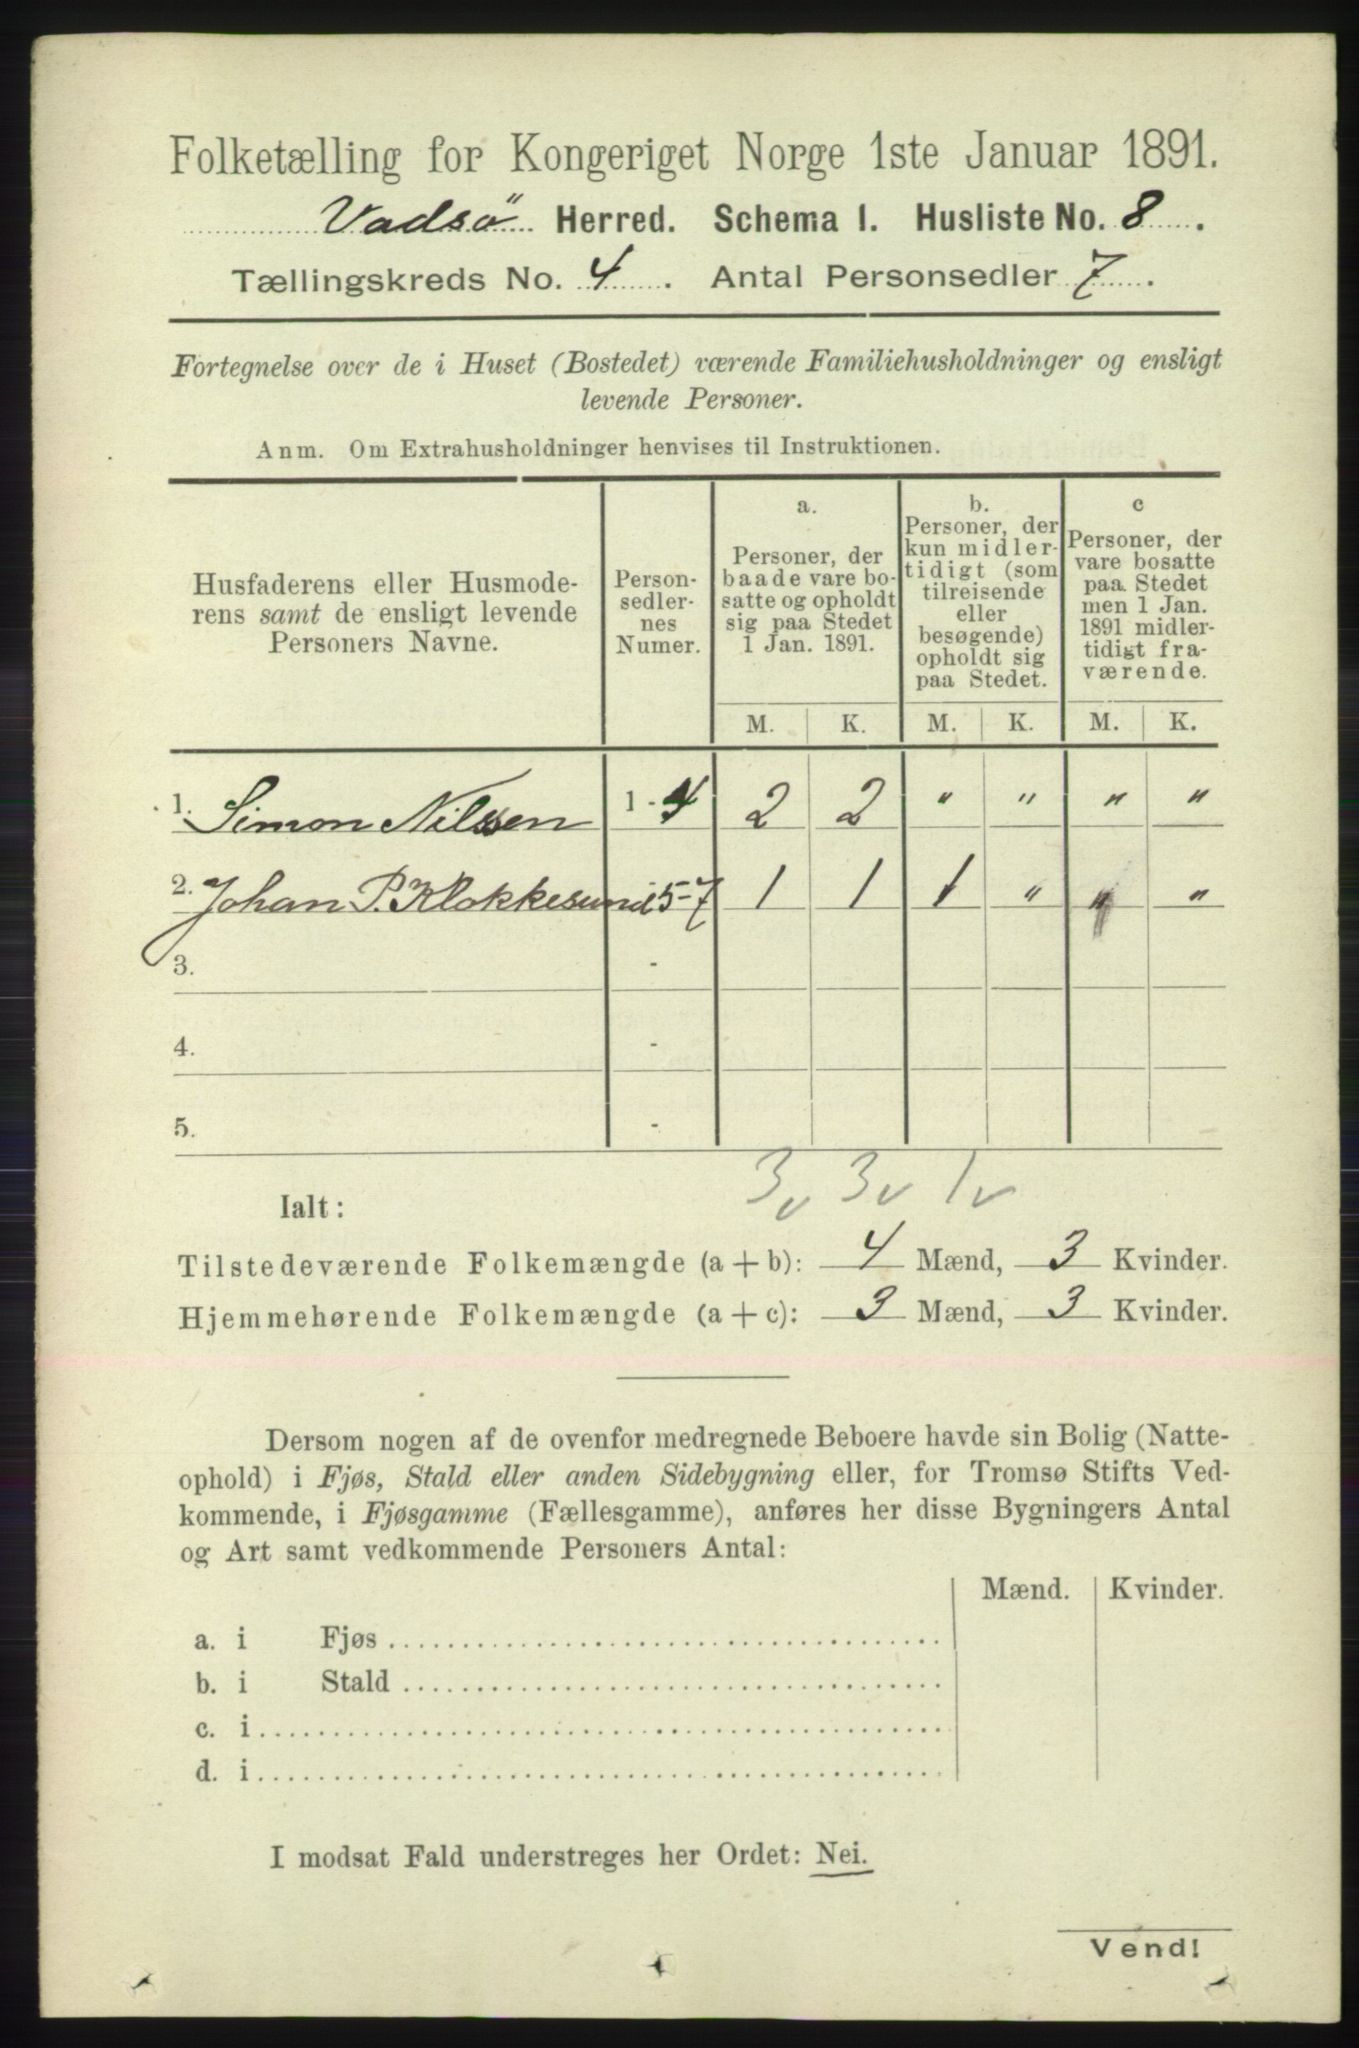 Folketælling for Kongeriget Norge 1ste Januar 1891.
Vadsö Herred. Schema I. Husliste No. 8.
Tællingskreds No. 4. Antal Personsedler 7.
Fortegnelse over de i Huset (Bostedet) værende Familiehusholdninger og ensligt
levende Personer.
Anm. Om Extrahusholdninger henvises til Instruktionen.
Husfaderens eller Husmode-
rens samt de ensligt levende
Personers Navne.
Person-
sedler-
nes
Numer.
a.
Personer, der
baade vare bo-
satte og opholdt
sig paa Stedet
1 Jan. 1891.
b.
Personer, der
kun midler-
tidigt (som
tilreisende
eller
besøgende)
opholdt sig
paa Stedet.
c
Personer, der
vare bosatte
paa Stedet
men 1 Jan.
1891 midler-
tidigt fra-
værende.
M. K. M. K. M. K.
1. Simon Nilssen 1 - 4 2 2 " " " "
2. Johan P. Klokkesund 5-7 1 1 1 " " "
3. -
4. -
5. -
3v 3v 1v
Ialt:
Tilstedeværende Folkemængde (a + b): 4 Mænd, 3 Kvinder.
Hjemmehørende Folkemængde (a + c): 3 Mænd, 3 Kvinder.
Dersom nogen af de ovenfor medregnede Beboere havde sin Bolig (Natte-
ophold) i Fjøs, Stald eller anden Sidebygning eller, for Tromsø Stifts Ved-
kommende, i Fjøsgamme (Fællesgamme), anføres her disse Bygningers Antal
og Art samt vedkommende Personers Antal:
Mænd. Kvinder.
a. i Fjøs
b. i Stald
c. i
d. i
I modsat Fald understreges her Ordet: Nei.
Vend!